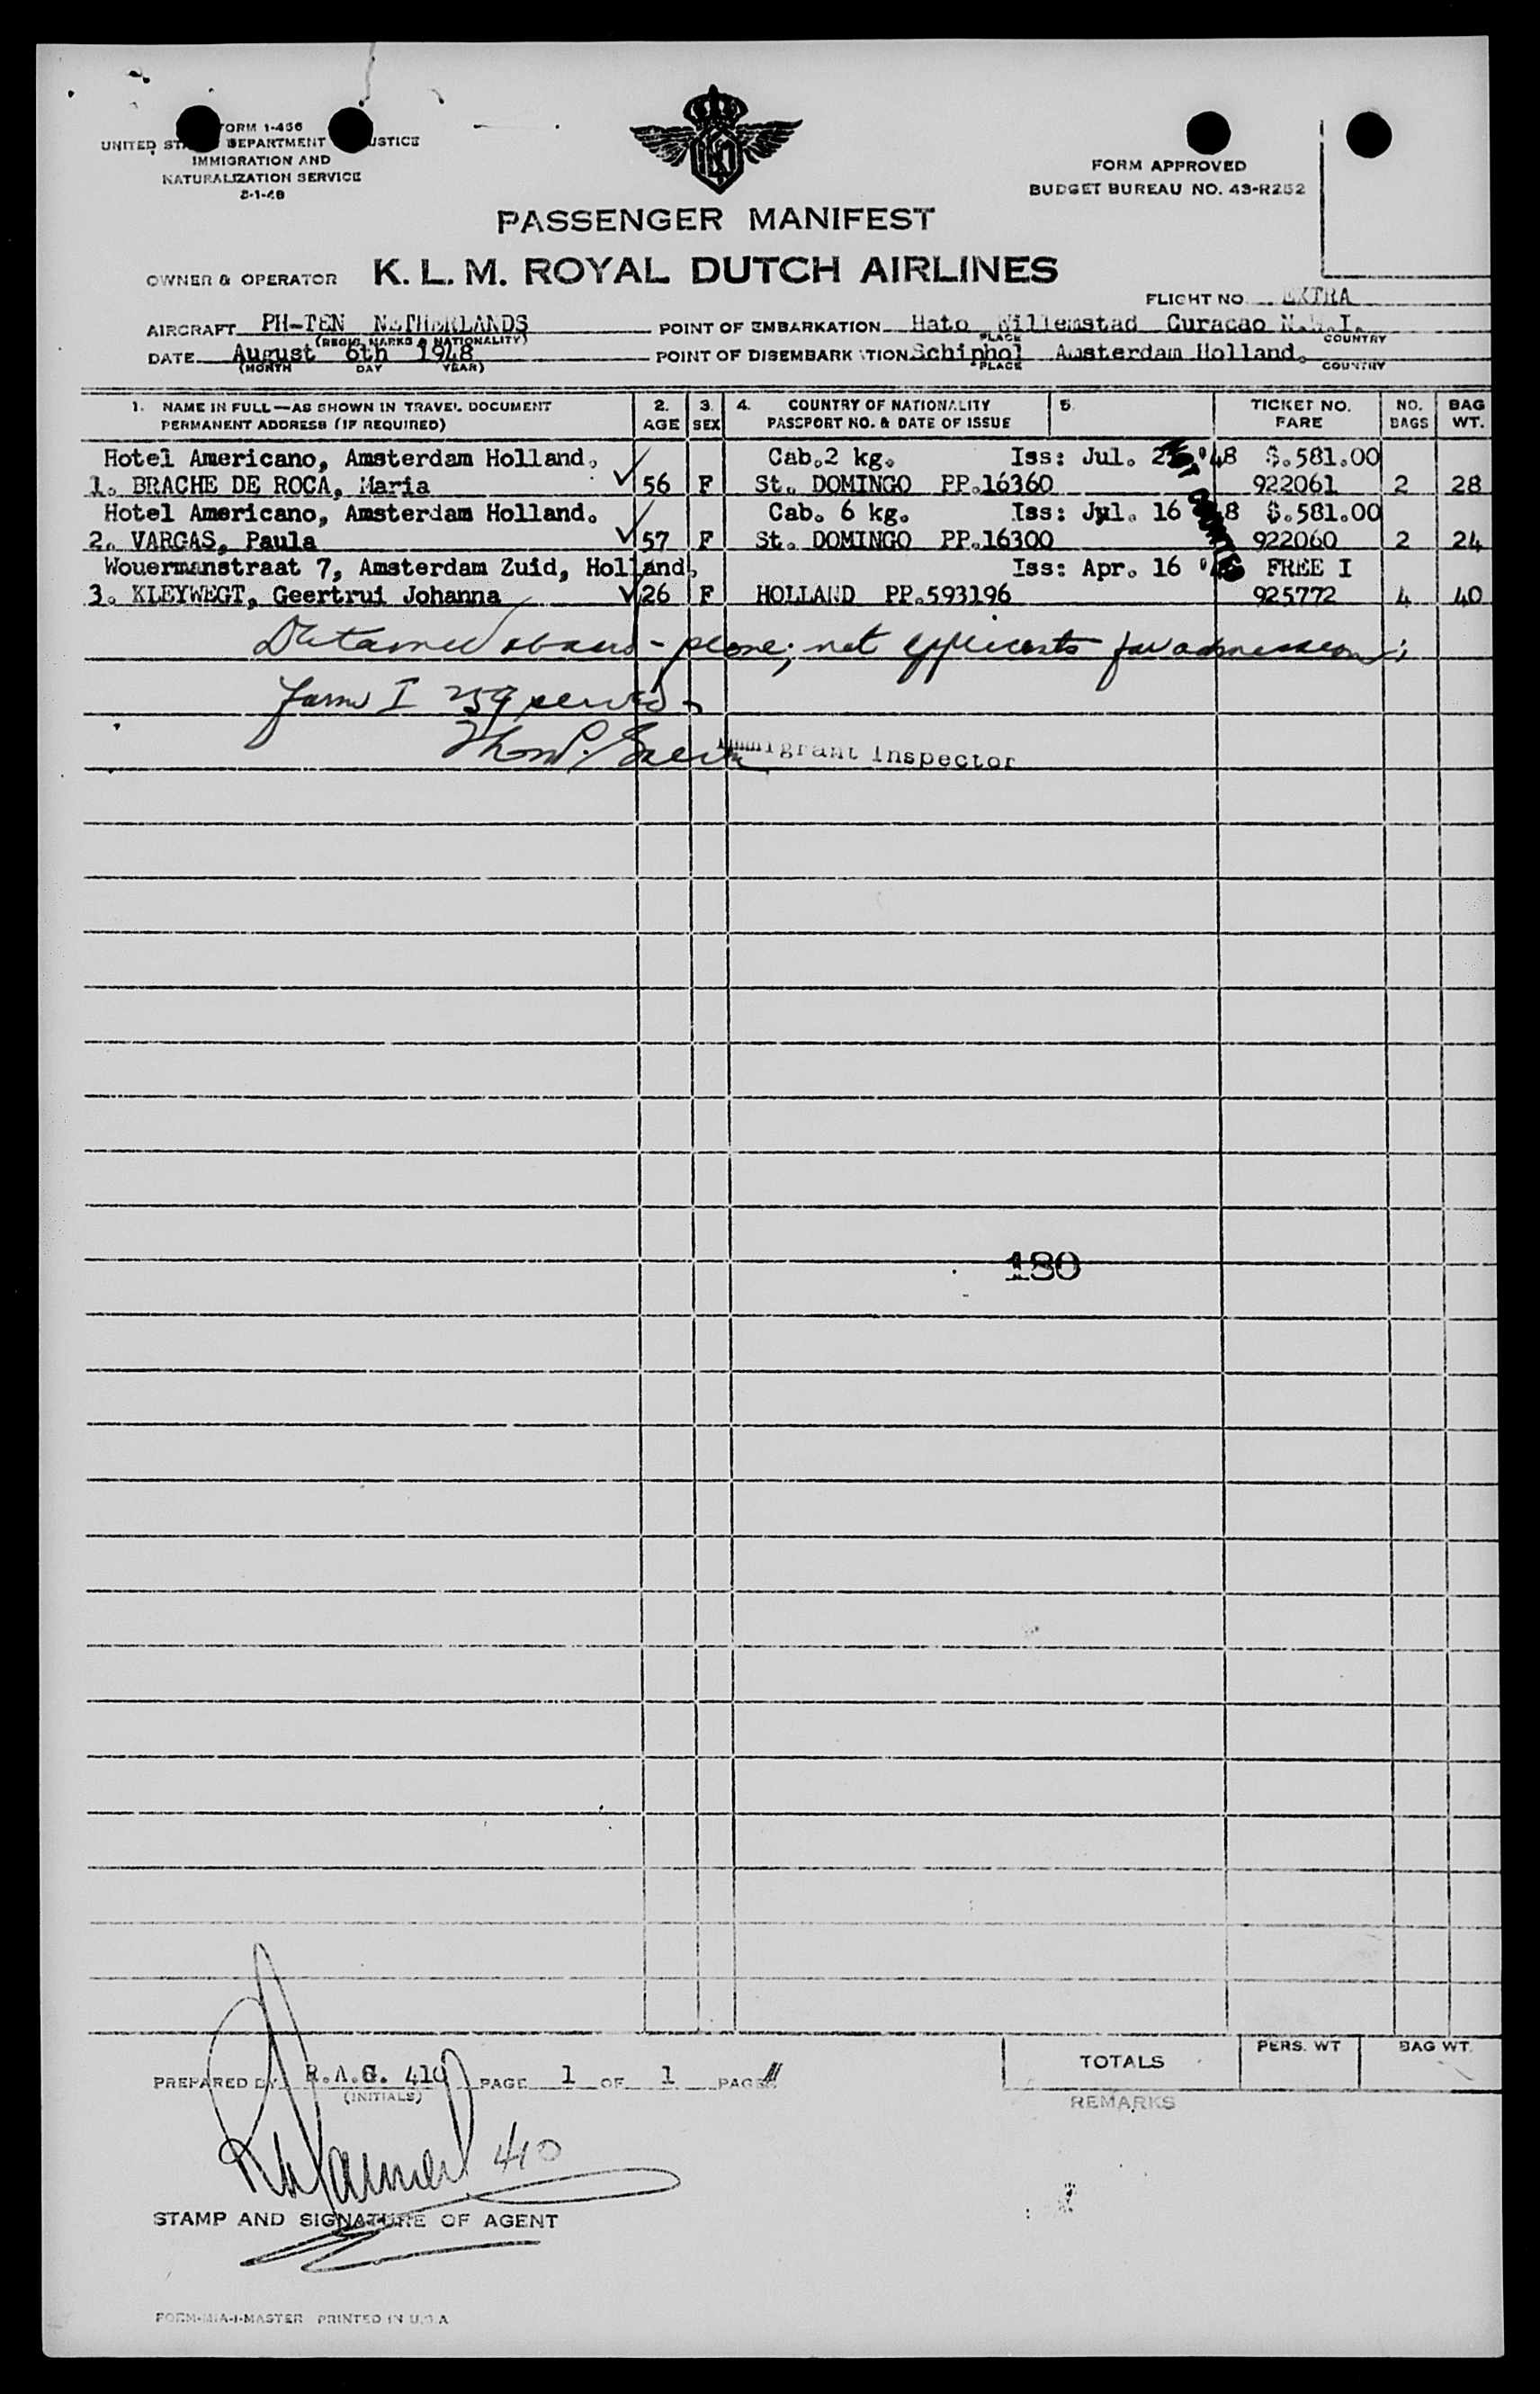 FORM I-466
UNITED STATES DEPARTMENT JUSTICE
IMMIGRATION AND
NATURALIZATION SERVICE
2-1-48
FORM APPROVED
BUDGET BUREAU NO. 43-R252
PASSENGER MANIFEST
OWNER & OPERATOR K. L. M. ROYAL DUTCH AIRLINES
FLIGHT NO. EXTRA
AIRCRAFT PH-TEN NETHERLANDS POINT OF EMBARKATION Hato Willemstad Curacao N.W.I.
(REGIS. MARKS & NATIONALITY) PLACE COUNTRY
DATE August 6th 1948 POINT OF DISEMBARKATION Schiphol Amsterdam Holland.
(MONTH DAY YEAR) PLACE COUNTRY
1. NAME IN FULL—AS SHOWN IN TRAVEL DOCUMENT 2. 3. 4. COUNTRY OF NATIONALITY 5. TICKET NO. NO. BAG
PERMANENT ADDRESS (IF REQUIRED) AGE SEX PASSPORT NO. & DATE OF ISSUE FARE BAGS WT.
Hotel Americano, Amsterdam Holland. Cab.2 kg. Iss: Jul. '48 $.581.00
1. BRACHE DE ROCA, Maria 56 F St. DOMINGO PP.16360 922061 2 28
Hotel Americano, Amsterdam Holland. Cab. 6 kg. Iss: Jul. 16 48 $.581.00
2. VARGAS, Paula 57 F St. DOMINGO PP.16300 922060 2 24
Wouermanstraat 7, Amsterdam Zuid, Holland. Iss: Apr. 16 FREE I
3. KLEYWEGT, Geertrui Johanna 26 F HOLLAND PP.593196 925772 4 40
Detained aboard - plane; not applicants for admission;
Form I 259 served
Immigrant Inspector
180
PREPARED BY R.A.G. 410 PAGE 1 OF 1 PAGES
(INITIALS)
TOTALS PERS. WT BAG WT.
REMARKS
410
STAMP AND SIGNATURE OF AGENT
FORM-MIA-I-MASTER PRINTED IN U.S.A